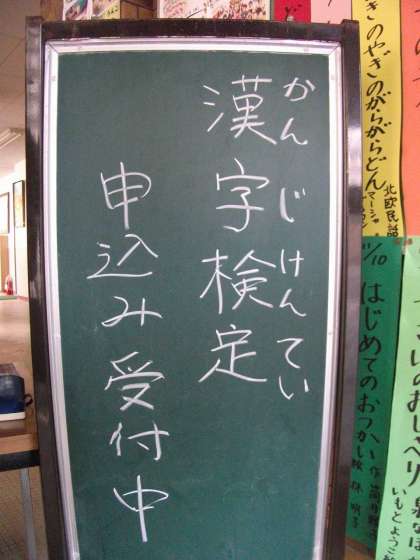 かんじけんてい
漢字検定
申込み受付中
きのやぎのがらがらどん
北欧民話
マーシャ
10
はじめてのおつかい
作 筒井頼子
絵 林明子
いのおしゃべり
いもとようこ絵